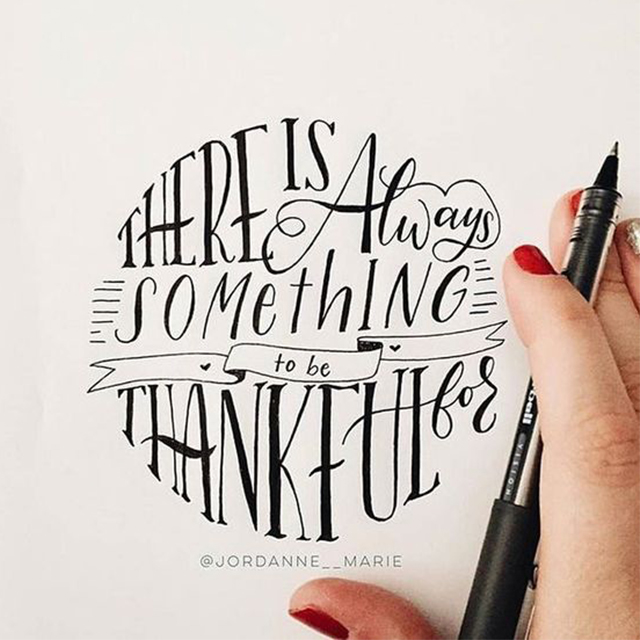 THERE IS Always
SOMethING
to be
THANKFUL for
@JORDANNE__MARIE
VISION